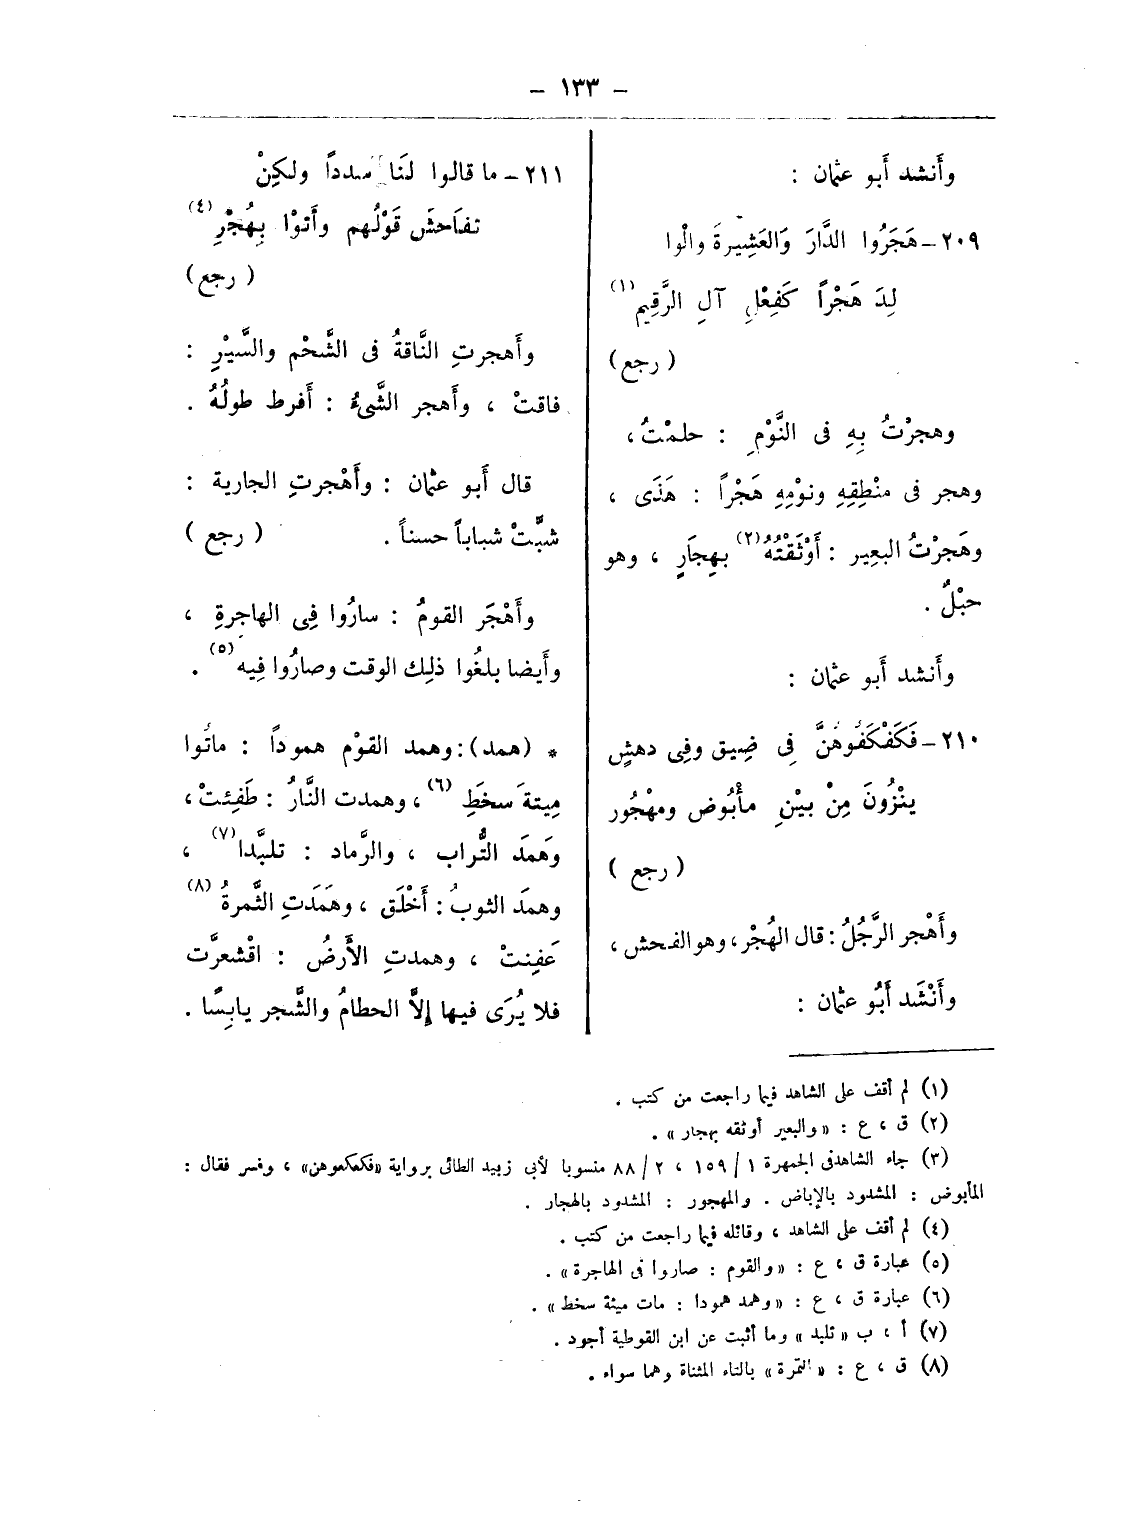 – ١٣٣ –
وأَنشد أَبو عثمان :
٢٠٩ – هَجَرُوا الدَّارَ وَالعَشِيرةَ والْوا
لِدَ هَجْراً كَفِعْلِ آلِ الرَّقِيمِ (١)
( رجع )
وهجرْتُ بِهِ فى النَّوْمِ : حلمْتُ ،
وهجر فى منْطِقِهِ ونوْمِهِ هَجْراً : هَذَى ،
وهَجرْتُ البعِير : أَوْثَقْتُهُ (٢) بهِجَارٍ ، وهو
حبْلٌ .
وأَنشد أَبو عثمان :
٢١٠ – فَكَفْكَفُوهُنَّ فِى ضِيق وفِى دهشٍ
ينْزُونَ مِنْ بيْنِ مأْبُوض ومهْجُور
( رجع )
وأَهْجر الرَّجُلُ : قال الهُجْر ، وهو الفحش ،
وأَنْشَد أَبُو عثمان :
٢١١ – ما قالوا لنَا سددا ولكِنْ
تفَاحشَ قَوْلُهم وأَتوْا بِهُجْرِ (٤)
( رجع )
وأَهجرتِ النَّاقةُ فى الشَّحْم والسَّيْرِ :
فاقتْ ، وأَهجر الشَّىءُ : أَفرط طولُهُ .
قال أَبو عثمان : وأَهْجرتِ الجارية :
شبَّتْ شباباً حسناً . ( رجع )
وأَهْجَر القومُ : سارُوا فِى الهاجرةِ ،
وأَيضا بلغُوا ذلِك الوقت وصارُوا فِيه (٥) .
* (همد) : وهمد القوْم هموداً : ماتُوا
مِيتةَ سخَطِ (٦) ، وهمدت النَّارُ : طَفِئتْ ،
وهَمدَ التُّراب ، والرَّماد : تلبَّدا (٧) ،
وهمدَ الثوبُ : أَخْلَق ، وهَمَدَتِ الثَّمرةُ (٨)
عَفِنتْ ، وهمدتِ الأَرضُ : اقْشعرَّت
فلا يُرَى فيها إِلاَّ الحطامُ والشَّجر يابِسًا .
(١) لم أقف على الشاهد فيما راجعت من كتب .
(٢) ق ، ع : «والبعير أوثقه بهجار» .
(٣) جاء الشاهد فى الجمهرة ١/ ١٥٩ ، ٢/ ٨٨ منسوبا لأبى زبيد الطائى برواية «فكعكعوهن» ، وفسر فقال :
المأبوض : المشدود بالإباض . والمهجور : المشدود بالهجار .
(٤) لم أقف على الشاهد ، وقائله فيما راجعت من كتب .
(٥) عبارة ق ، ع : «والقوم : صاروا فى الهاجرة» .
(٦) عبارة ق ، ع : «وهمد همودا : مات ميتة سخط» .
(٧) أ ، ب «تلبد» وما أثبت عن ابن القوطية أجود .
(٨) ق ، ع : «التمرة» بالتاء المثناة وهما سواء .